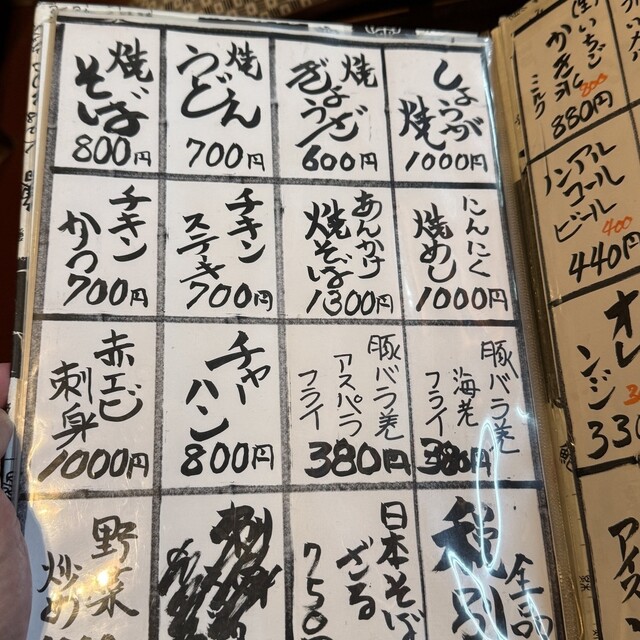 焼そば
800円
焼うどん
700円
焼ぎょうざ
600円
しょうが焼
1000円
チキンかつ
700円
チキンステーキ
700円
あんかけ焼そば
1300円
にんにく焼めし
1000円
赤エビ刺身
1000円
チャーハン
800円
豚バラ巻
アスパラ
フライ
380円
豚バラ巻
海老
フライ
380円
野菜
炒め
日本そば
ざる
750円
全品
税別
いちご
かき氷
ミルク
880円
ノンアル
コール
ビール
400
440円
オレンジ
330
アイス